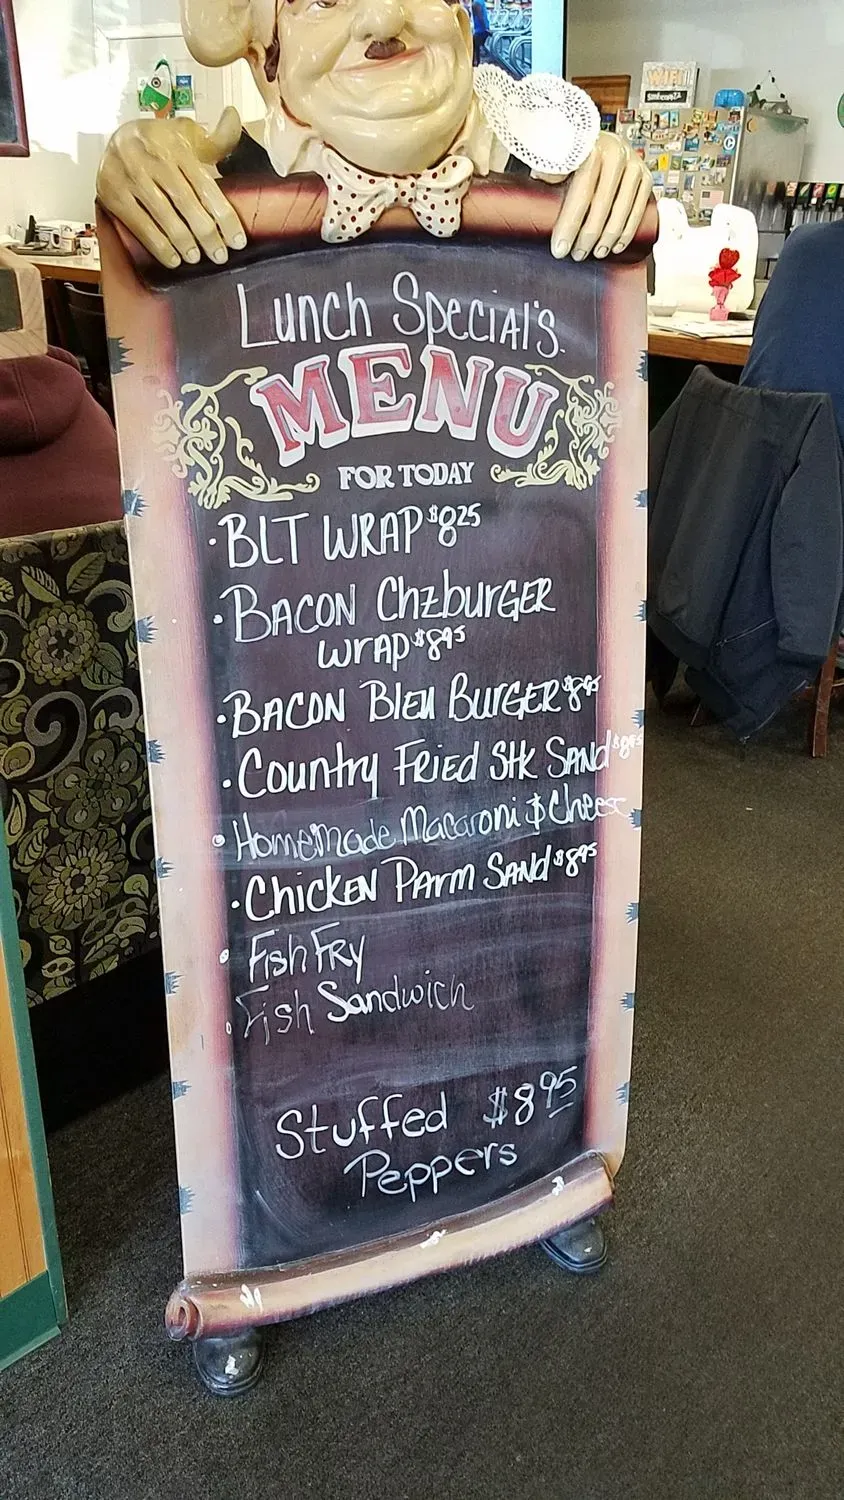 WIFI
Lunch Special's
MENU
FOR TODAY
• BLT WRAP $8.25
• BACON ChzburGER
WrAP $8.95
• BACON BlEu BurGER $8.95
• Country FriED Stk SAND $8.95
• HomEmade Macaroni & Cheese
• ChickEN PArm SAND $8.95
• Fish FRY
• Fish Sandwich
Stuffed $8.95
Peppers